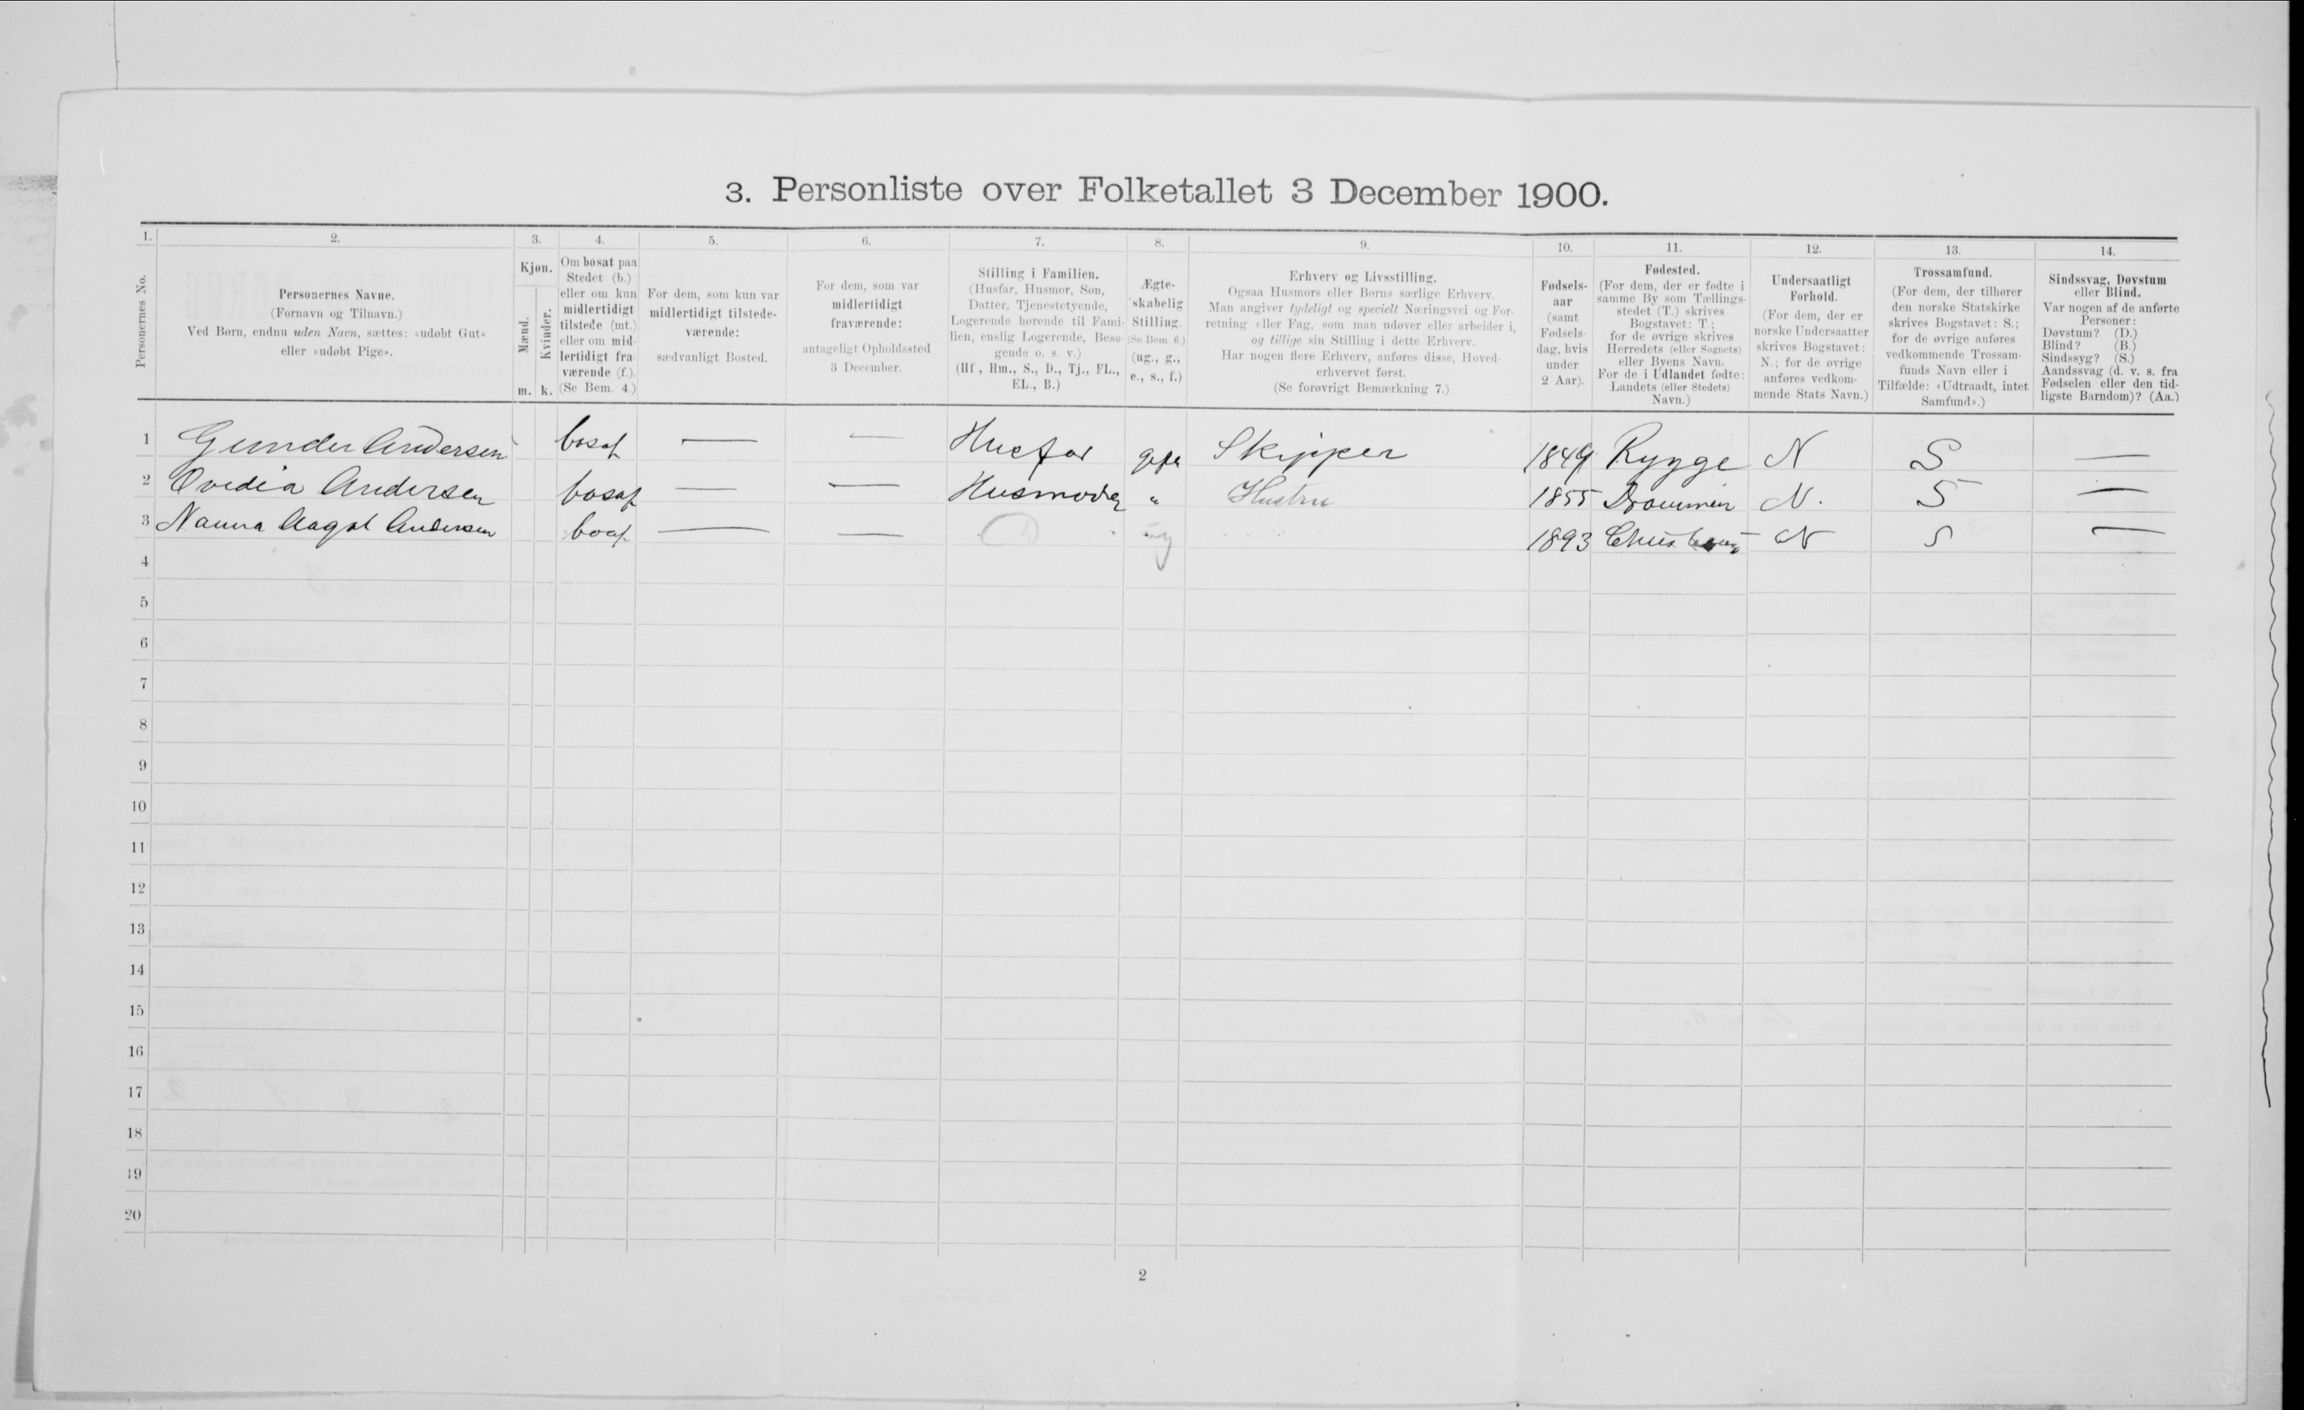 3. Personliste over Folketallet 3 December 1900.
1.
2.
3.
4.
5.
6.
7.
8.
9.
10.
11.
12.
13.
14.
Personernes No.
Personernes Navne.
(Fornavn og Tilnavn.)
Ved Børn, endnu uden Navn, sættes: «udøbt Gut»
eller «udøbt Pige».
Kjøn.
Mænd.
Kvinder.
m.
k.
Om bosat paa
Stedet (b.)
eller om kun
midlertidigt
tilstede (mt.)
eller om mid-
lertidigt fra-
værende (f.).
(Se Bem. 4.)
For dem, som kun var
midlertidigt tilstede-
værende:
sædvanligt Bosted.
For dem, som var
midlertidigt
fraværende:
antageligt Opholdssted
3 December.
Stilling i Familien.
(Husfar, Husmor, Søn,
Datter, Tjenestetyende,
Logerende hørende til Fami-
lien, enslig Logerende, Besø-
gende o. s. v.)
(Hf., Hm., S., D., Tj., FL.,
EL., B.)
Ægte-
skabelig
Stilling.
(Se Bem. 6.)
(ug., g.,
e., s., f.)
Erhverv og Livsstilling.
Ogsaa Husmors eller Børns særlige Erhverv.
Man angiver tydeligt og specielt Næringsvei og For-
retning eller Fag, som man udøver eller arbeider i,
og tillige sin Stilling i dette Erhverv.
Har nogen flere Erhverv, anføres disse, Hoved-
erhvervet først.
(Se forøvrigt Bemærkning 7.)
Fødsels-
aar
(samt
Fødsels-
dag, hvis
under
2 Aar).
Fødested.
(For dem, der er fødte i
samme By som Tællings-
stedet (T.) skrives
Bogstavet: T;
for de øvrige skrives
Herredets (eller Sognets)
eller Byens Navn.
For de i Udlandet fødte:
Landets (eller Stedets)
Navn.)
Undersaatligt
Forhold.
(For dem, der er
norske Undersaatter
skrives Bogstavet:
N.; for de øvrige
anføres vedkom-
mende Stats Navn.)
Trossamfund.
(For dem, der tilhører
den norske Statskirke
skrives Bogstavet: S.;
for de øvrige anføres
vedkommende Trossam-
funds Navn eller i
Tilfælde: «Udtraadt, intet
Samfund».)
Sindssvag, Døvstum
eller Blind.
Var nogen af de anførte
Personer:
Døvstum? (D.)
Blind? (B.)
Sindssyg? (S.)
Aandssvag (d. v. s. fra
Fødselen eller den tid-
ligste Barndom)? (Aa.)
1 Gunder Andersen bosat — — Husfar gift Skipper 1849 Rygge N S —
2 Ovedia Andersen bosat — — Husmoder " Hustru 1855 Drammen N. S —
3 Nanna Aagot Andersen bosat — — D ug 1893 N S —
4
5
6
7
8
9
10
11
12
13
14
15
16
17
18
19
20
2